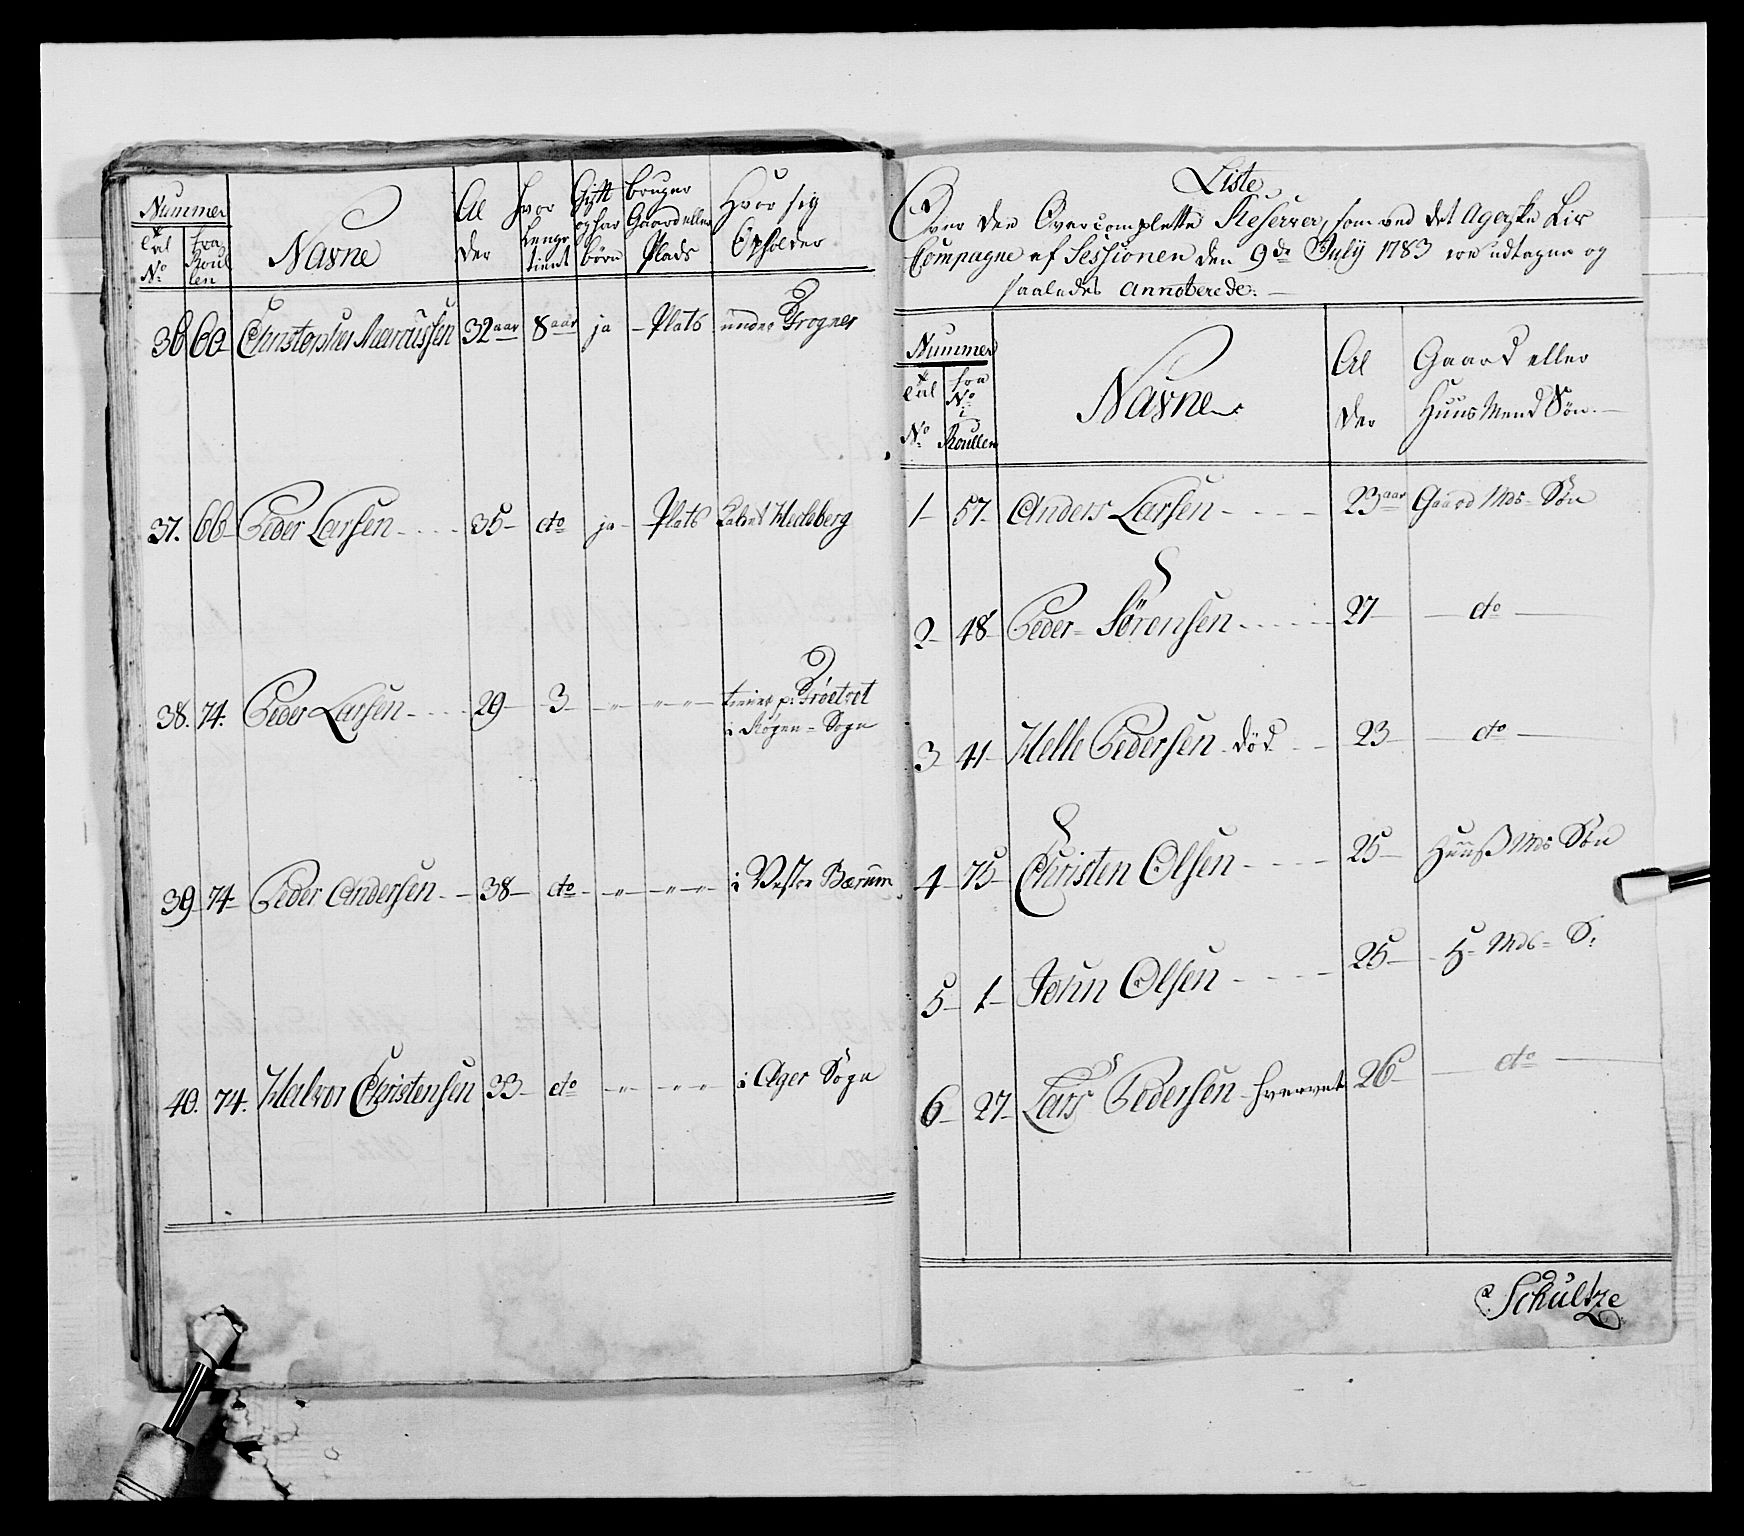 Nummer
Navne
Al
der
Hvor
Lenge
tient
Gift
og har
børn
bruger
Gaard eller
Plads
Hvor sig
Opholder
No
fra
Roul
len
36 60 Christopher Marcussen 32 aar 8 aar ja - Plats under Frogner
37. 66 Peder Larsen 35 do ja - Plats
38. 74. Peder Larsen 29 3 - " - " - "
i Røgen = Sogn
39 74 Peder Andersen 38 do - " - " - " - i Vester Bærum
40. 74. Halvor Christensen 33 do - " - " - " i Ager Sogn
Liste
Over den Overcomplette Reserver, som ved det Agerske Liv
Compagne af Sessionen den 9de Julÿ 1783 ere udtagne og
saaledes Annoterede. -
Nummer
No
fra
No
i
Roullen
Navne
Al
der
Gaard eller
Huus Mend Søn. -
1 57 Anders Larsen 23 aar Gaard Mds = Søn
2 48 Peder = Sørensen 27 do
3 41 Helle Pedersen død 23 do
4 75 Christen Olsen 25 Huuß Mds Søn
5 1 John Olsen 25 H = Mds = S:
6 27 Lars Pedersen hvervet 26 do
Schultze